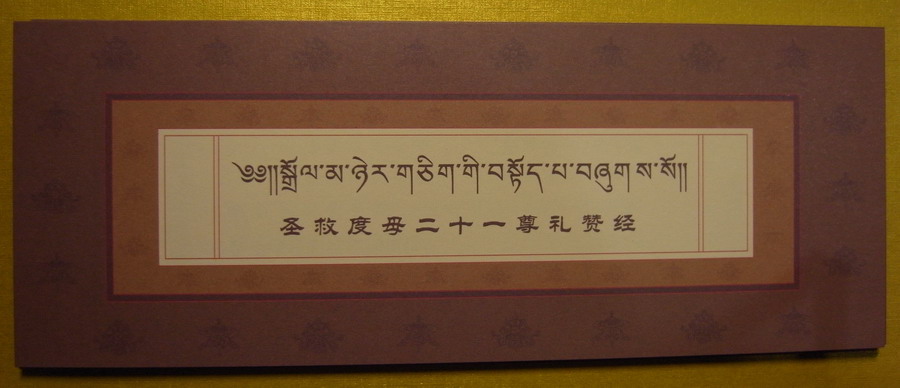 ༄༅།།སྒྲོལ་མ་ཉེར་གཅིག་གི་བསྟོད་པ་བཞུག་ས་སོ།།
圣救度母二十一尊礼赞经